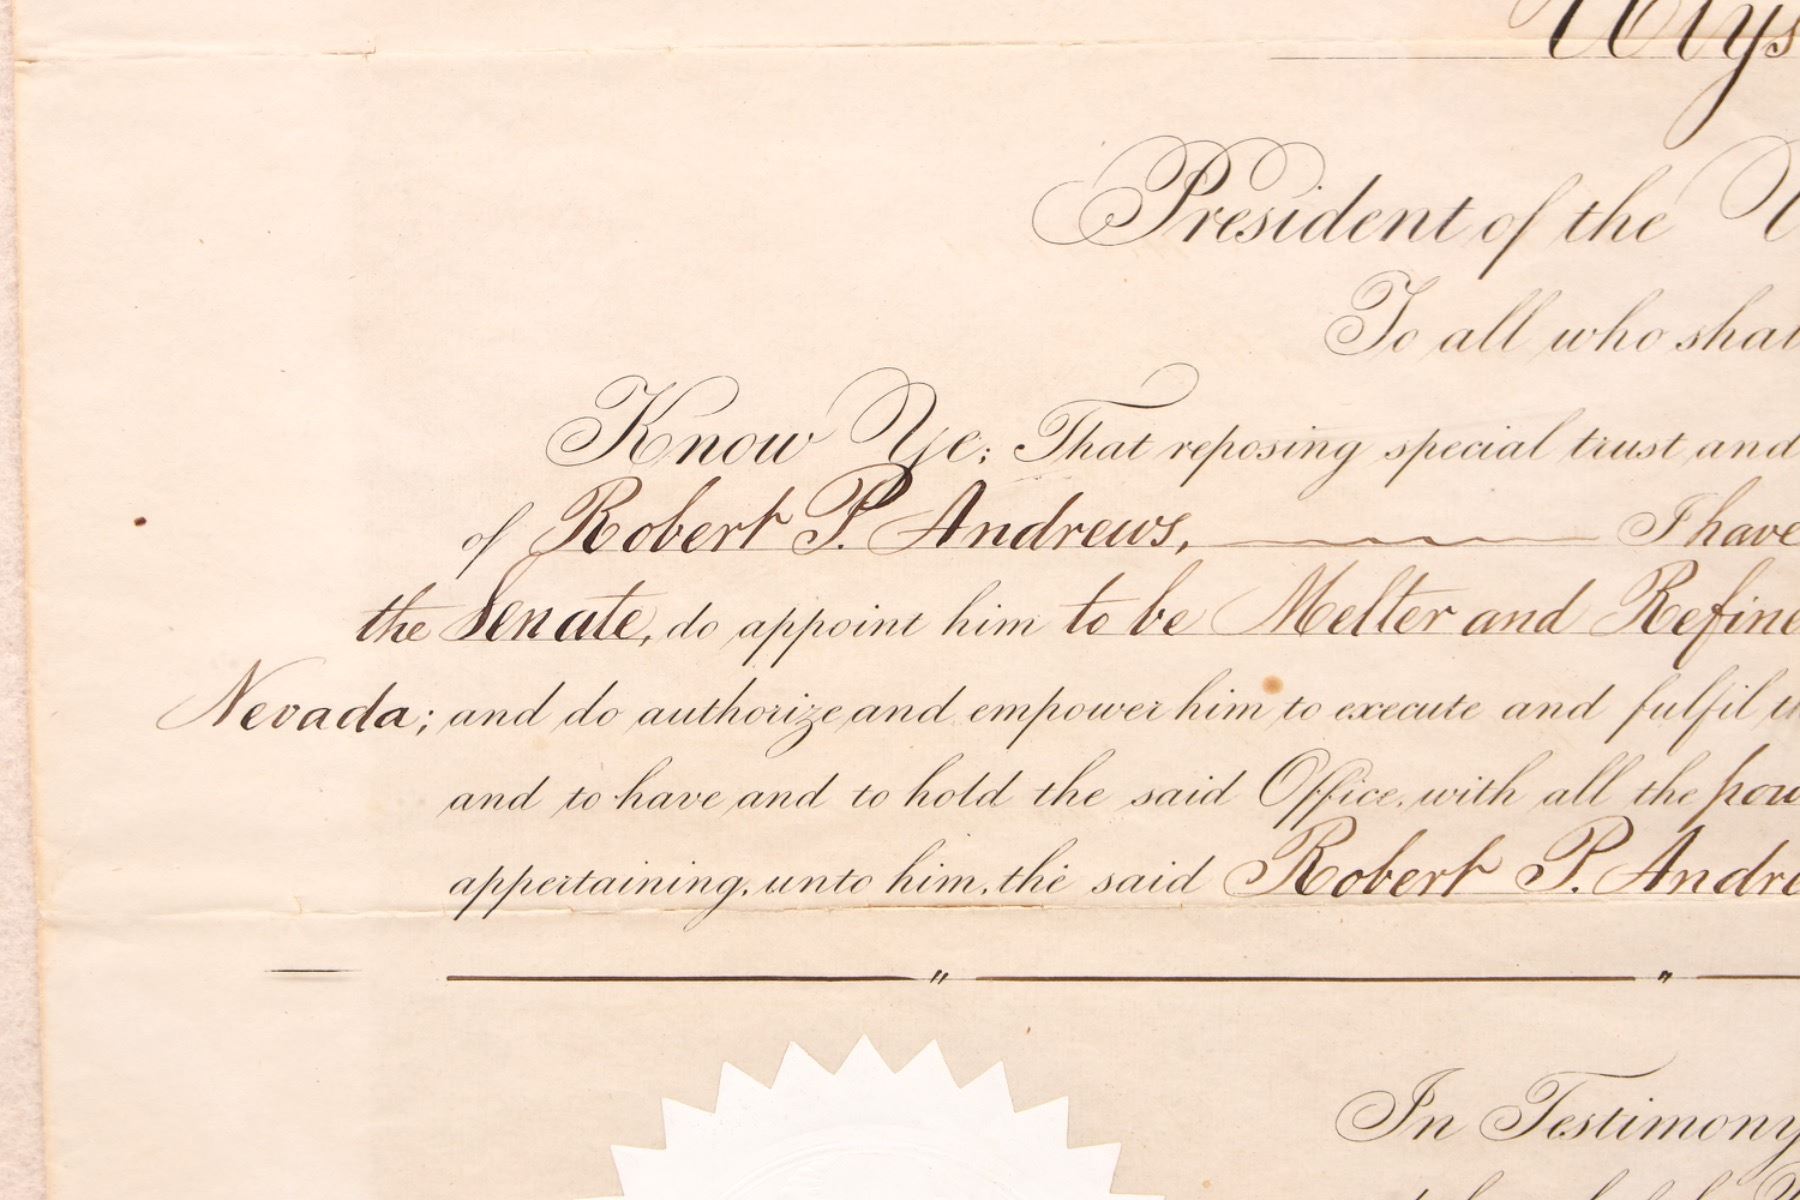 Ulys
President of the U
To all who shal
Know Ye; That reposing special trust and
of Robert P. Andrews, I have
the Senate, do appoint him to be Melter and Refine
Nevada; and do authorize and empower him to execute and fulfil th
and to have and to hold the said Office, with all the pow
appertaining, unto him, the said Robert P. Andre
In Testimony